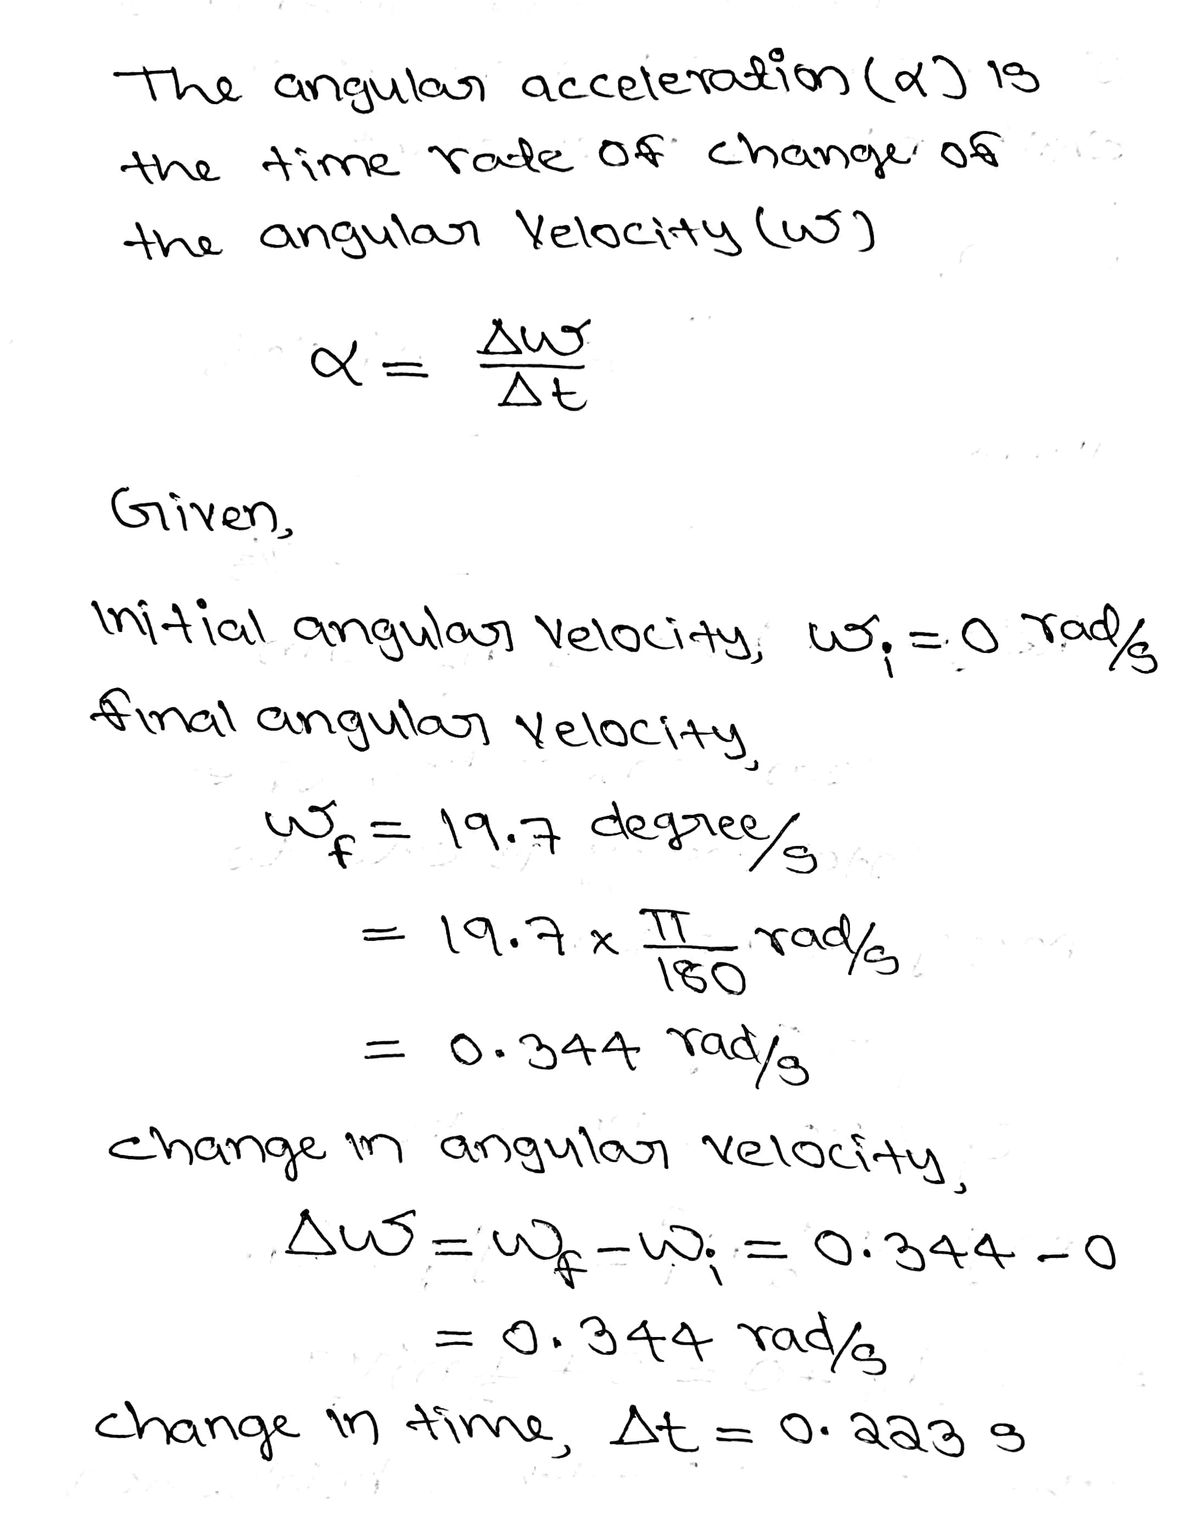 The angular acceleration (α) is
the time rate of change of
the angular velocity (ω)
α = Δω/Δt
Given,
Initial angular velocity, ωi = 0 rad/s
final angular velocity,
ωf = 19.7 degree/s
= 19.7 × π/180 rad/s
= 0.344 rad/s
change in angular velocity,
Δω = ωf - ωi = 0.344 - 0
= 0.344 rad/s
change in time, Δt = 0.223 s